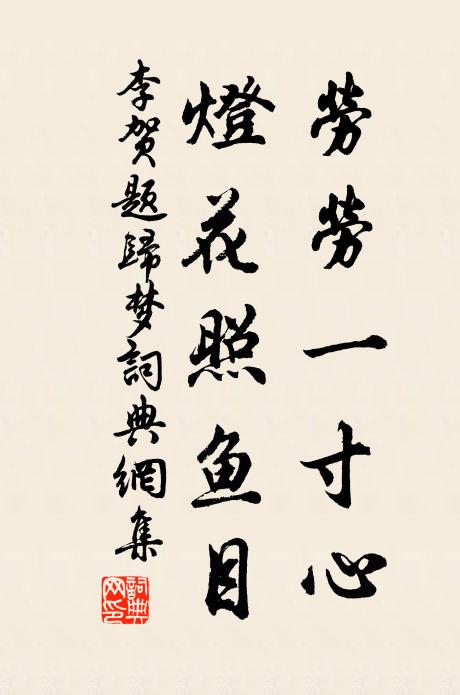 勞勞一寸心
燈花照鱼目
李贺题歸梦詞典網集
詞典网印